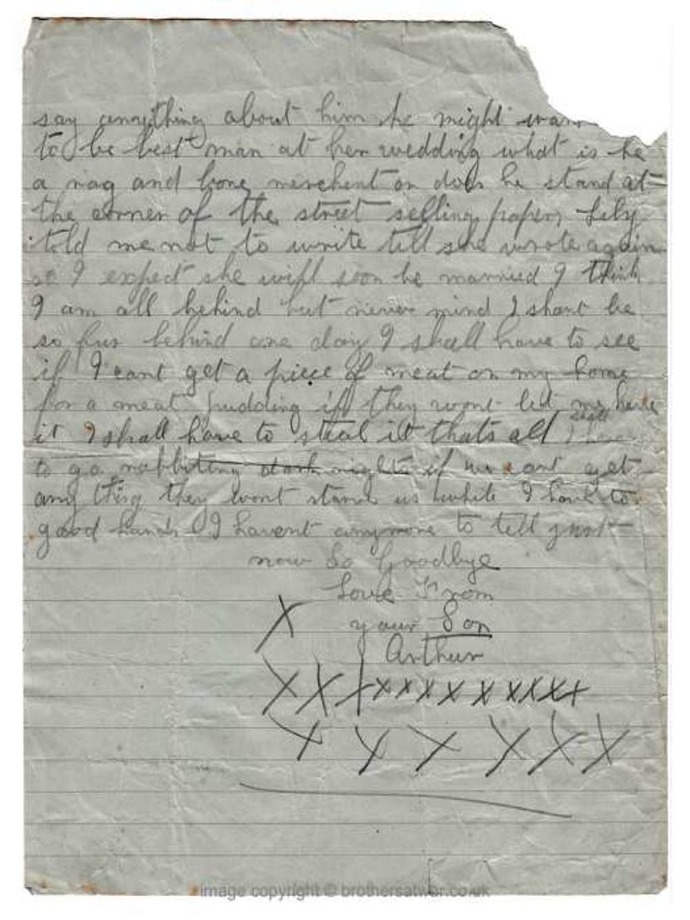 say anything about him he might wan
to be best man at her wedding what is he
a rag and bone merchent or does he stand at
the corner of the street selling papers Lily
told me not to write till she wrote again
so I expect she will soon be married I think
I am all behind but never mind I shant be
so far behind one day I shall have to see
if I cant get a piece of meat on my home
for a meat pudding if they wont let me have
it I shall have to steal it thats all I shall
to go rabbiting dark nights if we cant get
any thing they wont starve us while I have to
good hands I havent anymore to tell just
now So Goodbye
Love From
your Son
Arthur
X
X X X X X X X X X X X X
X X X X X X
image copyright © brothersatwar.co.uk